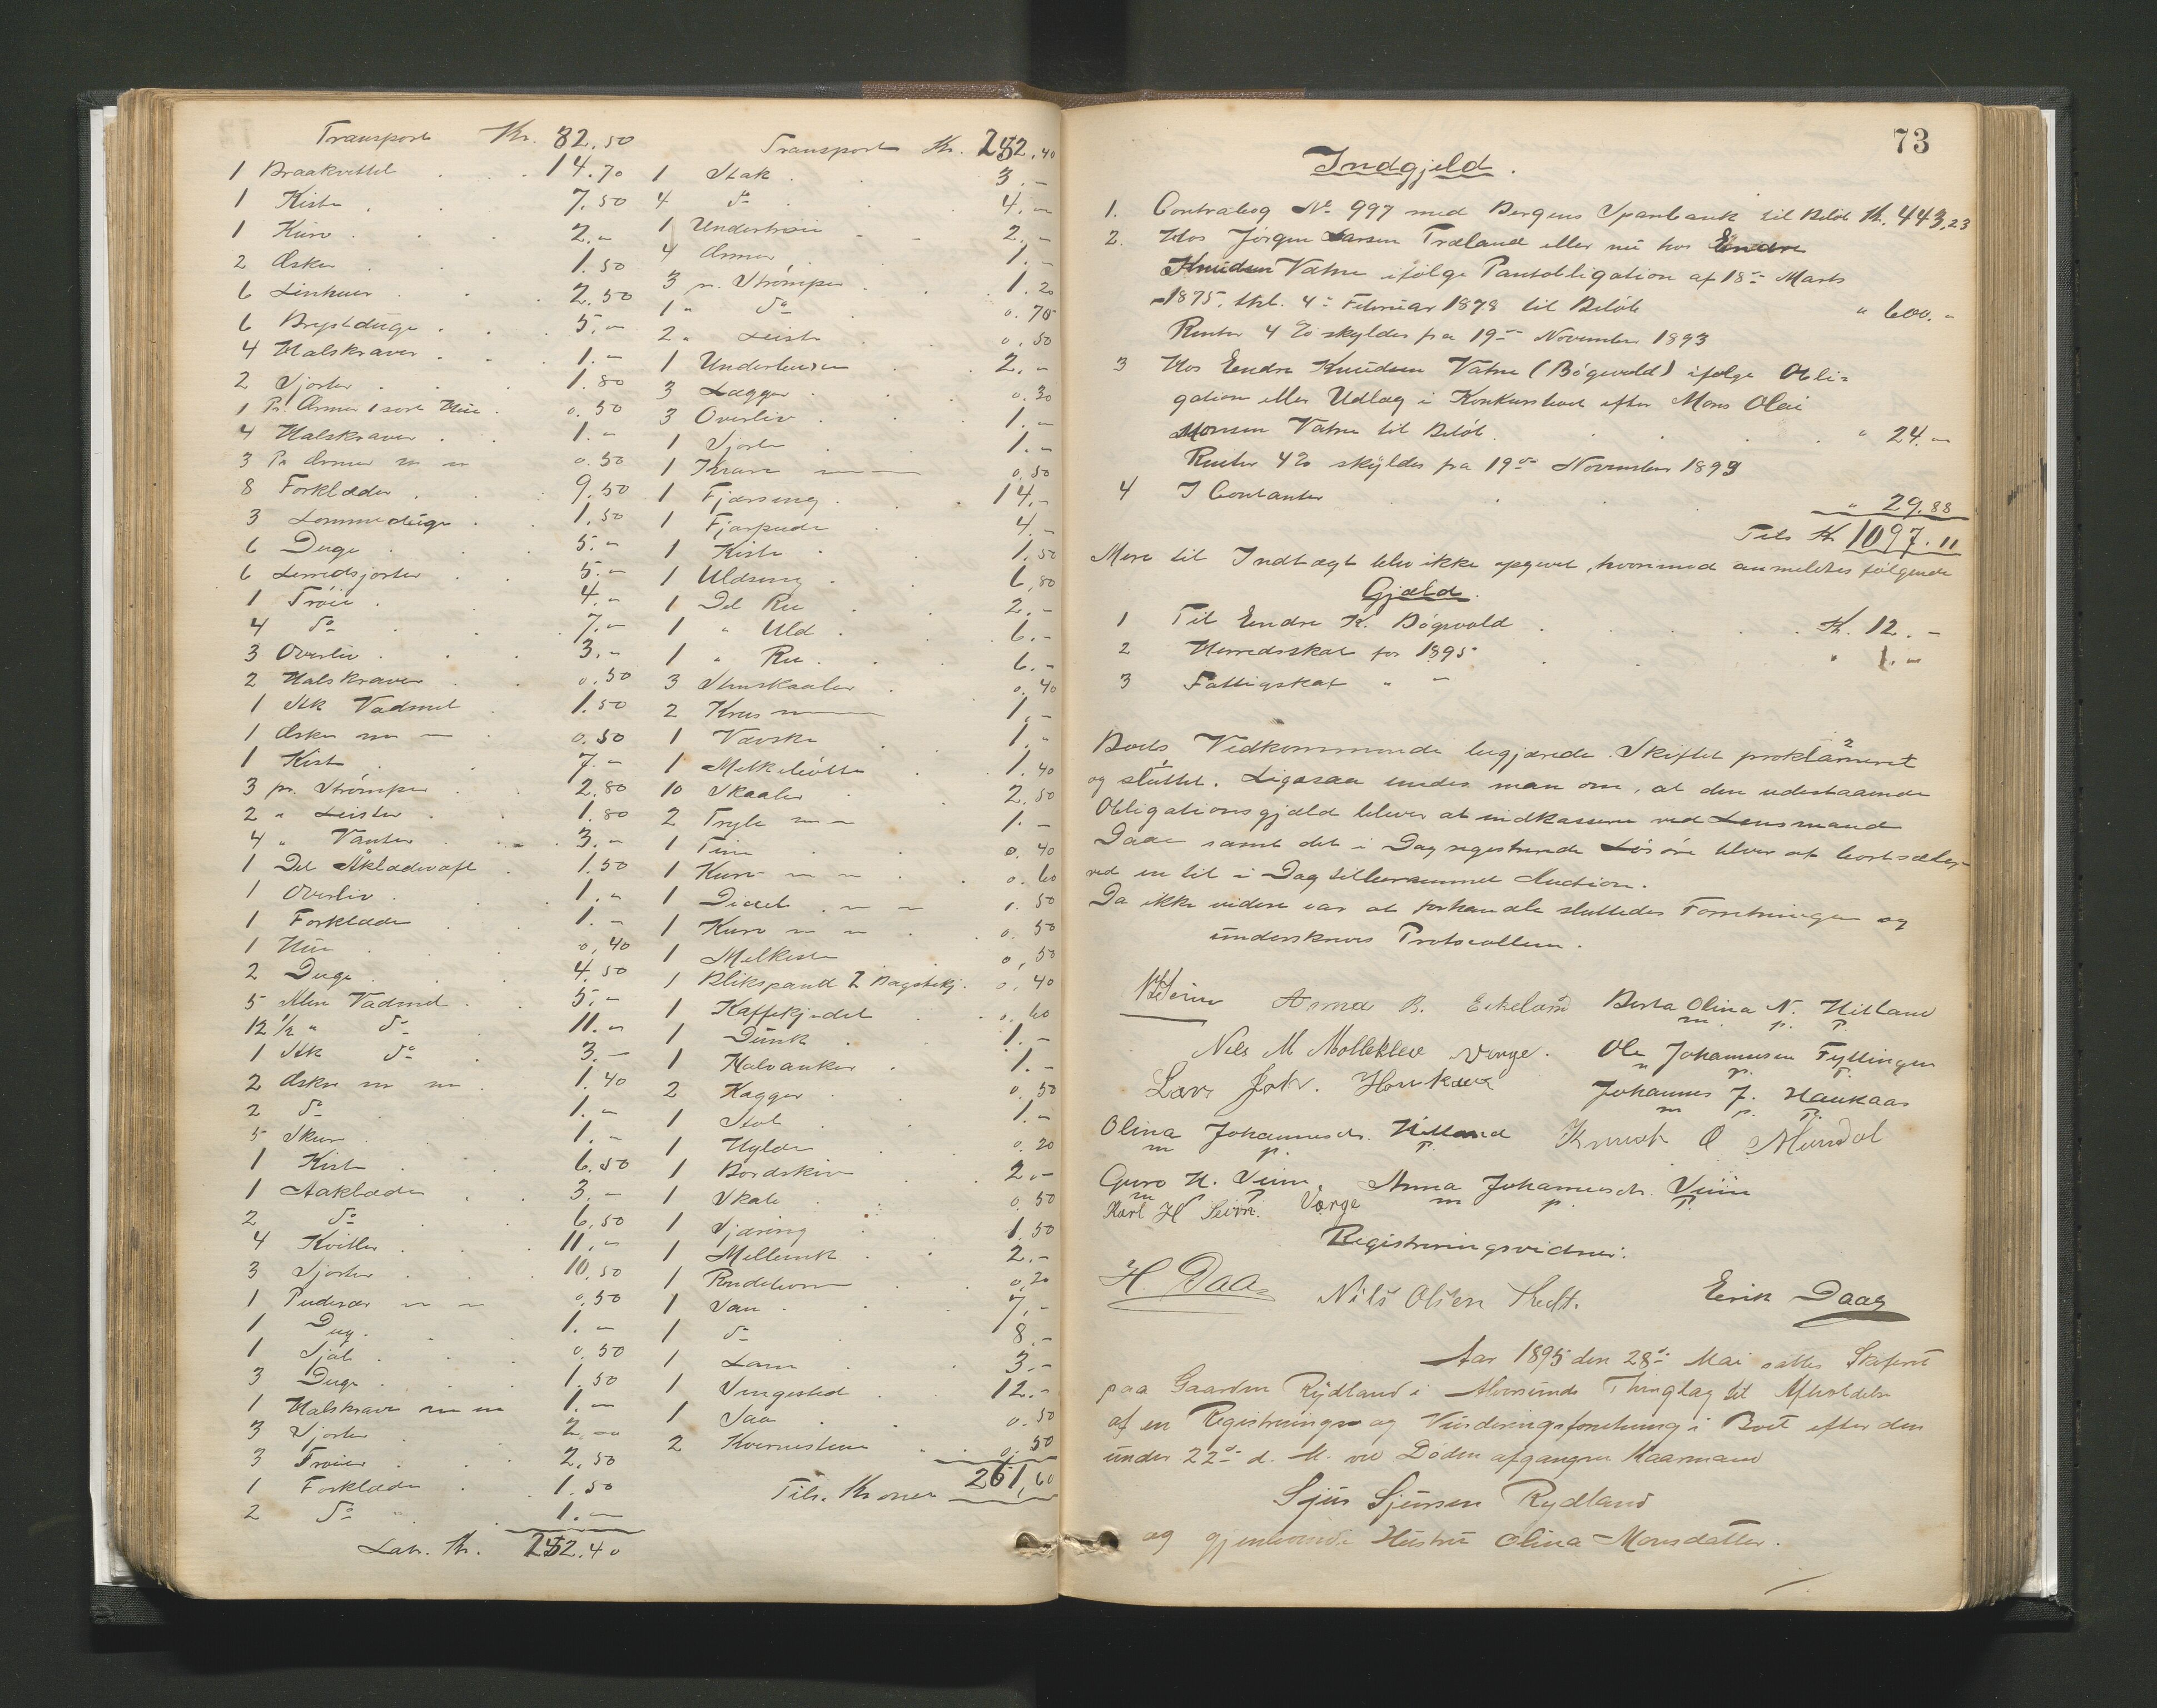 Transport Kr. 82.50
1 Braakvittel 14.70
1 Kiste 7.50
1 Kurv 2.-
2 Æsker 1.50
6 Linhuer 2.50
6 Brystduge 5.-
4 Halskraver 1.-
2 Sjorter 1.80
1 Pr. Ærmer 1 sort Hue 0.50
4 Halskraver 1.-
3 Pr Ærmer m m 0.50
8 Forklæder 9.50
3 Lommeduge 1.50
6 Duge 5.-
6 Lerredsjorter 5.-
1 Tröie 4.-
4 do 7.-
3 Overliv 3.-
2 Halskraver 0.50
1 Stk Vadmel 1.50
1 Æske m m 0.50
1 Kiste 7.-
3 pr. Strömper 2.80
2 " Leister 1.80
4 " Vanter 3.-
1 Del Åklædevæft 1.50
1 Overliv 1.-
1 Forklæde 1.-
1 Hue 0.40
2 Duge 4.50
5 Alen Vadmel 5.-
12 1/2 " do 11.-
1 Stk do 3.-
2 Æsker m m 1.40
2 do 1.-
5 Skur 1.-
1 Kiste 6.50
1 Aaklæde 3.-
2 do 6.50
4 Kvitler 11.-
3 Sjorter 10.50
1 Pudevar m m 0.50
1 Dug 1.-
1 Sjal 0.50
3 Duge 1.50
1 Halskrave m m 1.-
3 Sjorter 2.-
3 Tröier 2.50
1 Forklæde 1.50
2 do 1.-
Lat. Kr. 252.40
Transport Kr. 252.40
1 Stak 3.-
4 do 4.-
1 Undertröie 2.-
4 Ærmer 1.-
3 pr. Strömper 1.20
1 " do 0.70
2 " Leister 0.50
1 Underbuxe 2.-
3 Lægger 0.30
3 Overliv 1.-
1 Sjorte 1.-
1 Krave m m 0.50
1 Fjærseng 14.-
1 Fjærpude 4.-
1 Kiste 1.50
1 Uldseng 6,80
1 Del Ru 2.-
1 " Uld 6.-
1 " Ru 6.-
3 Stenskaaler 0.40
2 Krus m 1.-
1 Vævske 1.-
1 Melkebötte 1.40
10 Skaaler 2.50
2 Tryle m m 1.-
1 Tine 0.40
1 Kurv m m 0.60
1 m m 1.50
1 Kurv m m 0.50
1 Melkiste 0,50
1 Blikspand 2 Bagstekj. 0.40
1 Kaffekjedel 0.60
1 Dunk 1.-
1 Halvanker 1.-
2 Kagger 0.50
1 Stol 1.-
1 Hylde 0.20
1 Bordskive 2.-
1 Skab 0.50
1 Sjæring 1.50
1 2.-
1 0,20
1 Sau 7.-
1 do 8.-
1 Lam 3.-
1 Sengested 12.-
1 Saa 0.50
2 Kvernstene 0.50
Tils. Kroner 261,60
73
Indgjeld.
1. Contrabog No 997 med Bergens Sparebank til Belöb Kr. 443,23
2. Hos Jørgen Larsen Træland eller nu hos Endre
Knudsen Vatne ifölge Pantobligation af 18de Marts
1875, thl. 4de Februar 1878 til Belöb " 600.-
Renter 4 % skyldes fra 19de November 1893
3 Hos Endre Knudsen Vatne (Bögevold) ifölge Obli-
gation eller Udlæg i Konkursboet efter Mons Olai
Monsen Vatne til Belöb " 24.-
Renter 4 % skyldes fra 19de November 1893
4 I Contanter " 29.88
Tils Kr 1097.11
Mere til Indtægt blev ikke opgivet, hvorimod anmeldtes fölgende
Gjæld.
1 Til Endre K. Bögevold Kr. 12.-
2 Herredsskat for 1895 " 1.-
3 Fattigskat " -
Boets Vedkommende begjærede Skiftet proklameret
og sluttet. Ligesaa enedes man om, at den udestaaende
Obligationsgjæld bliver at indkassere ved Lensmand
Daae samt det i Dag registrerede Lösöre bliver at bortsælges
ved en til i Dag tillersammet Auction.
Da ikke videre var at forhandle sluttedes Forretningen og
underskrives Protocollen.
Anna B. Eikeland Berta Olina N. Hilland
m. p. P.
Nils M Mollekleiv Verge. Ole Johannesen Fyllingen
m p. P.
Lars Joh. Haukaas Johannes J. Haukaas
m p. P.
Olina Johannesdr. Hilland Knut O Mundal
m p. P.
Guro H. Seim Anna Johannesdr. Seim
m P. m p. P.
Karl H Seim. Verge
Registreringsvidner:
H. Daae Nils Olsen Tveit. Erik Daae
Aar 1895 den 28de Mai sattes Skifteret
paa Gaarden Rydland i Alversunds Thinglag til Afholdelse
af en Registrerings og Vurderingsforretning i Boet efter den
under 22de d. M. ved Döden afgangne Kaarmand
Sjur Sjursen Rydland
og gjenlevende Hustru Olina Monsdatter.